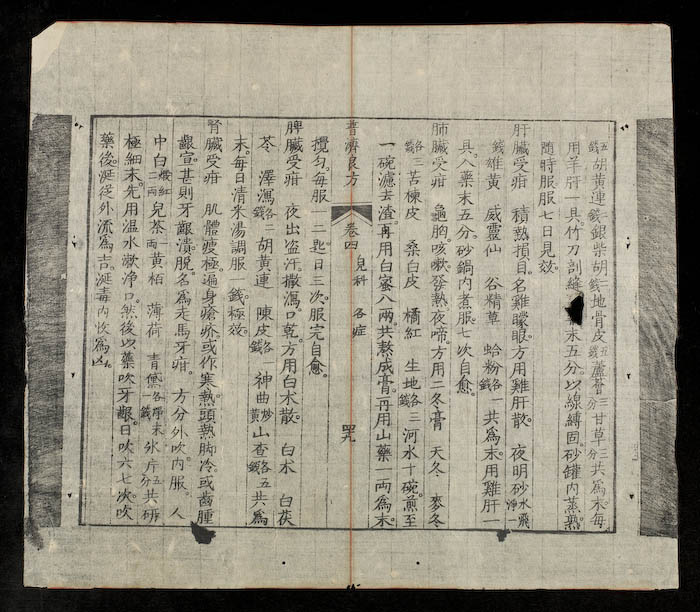 五錢胡黃連一錢銀柴胡二錢地骨皮五錢蘆薈三分甘草三分共為末每
用羊肝一具竹刀剖縫末五分以線縛固砂罐內蒸熟
隨時服服七日見效
肝臟受疳　積熱損目名雞矇眼方用雞肝散　夜明砂水飛淨一
錢雄黃　威靈仙　谷精草　蛤粉各一錢共為末用雞肝一
具入藥末五分砂鍋內煮服七次自愈
肺臟受疳　龜胸咳嗽發熱夜啼方用二冬膏　天冬　麥冬
各三錢苦楝皮　桑白皮　橘紅　生地各三錢河水十碗煎至
一碗濾去渣再用白蜜八兩共熬成膏再用山藥一兩為末
普濟良方　卷四　兒科　各症　四九
攪勻每服一二匙日三次服完自愈
脾臟受疳　夜出盜汗撒瀉口乾方用白朮散　白朮　白茯
苓　澤瀉各二錢胡黃連　陳皮各一錢　神曲炒黃山查各五錢共為
末每日清米湯調服一錢極效
腎臟受疳　肌體瘦極遍身瘡疥或作寒熱頭熱脚冷或齒腫
齦宣甚則牙齦潰脫名為走馬牙疳　方分外吹內服　人
中白煅紅二兩兒茶一兩黃栢　薄荷　青黛各淨末一錢氷片五分共研
極細末先用溫水漱淨口然後以藥吹牙齦日吹六七次吹
藥後涎從外流為吉涎毒內收為凶